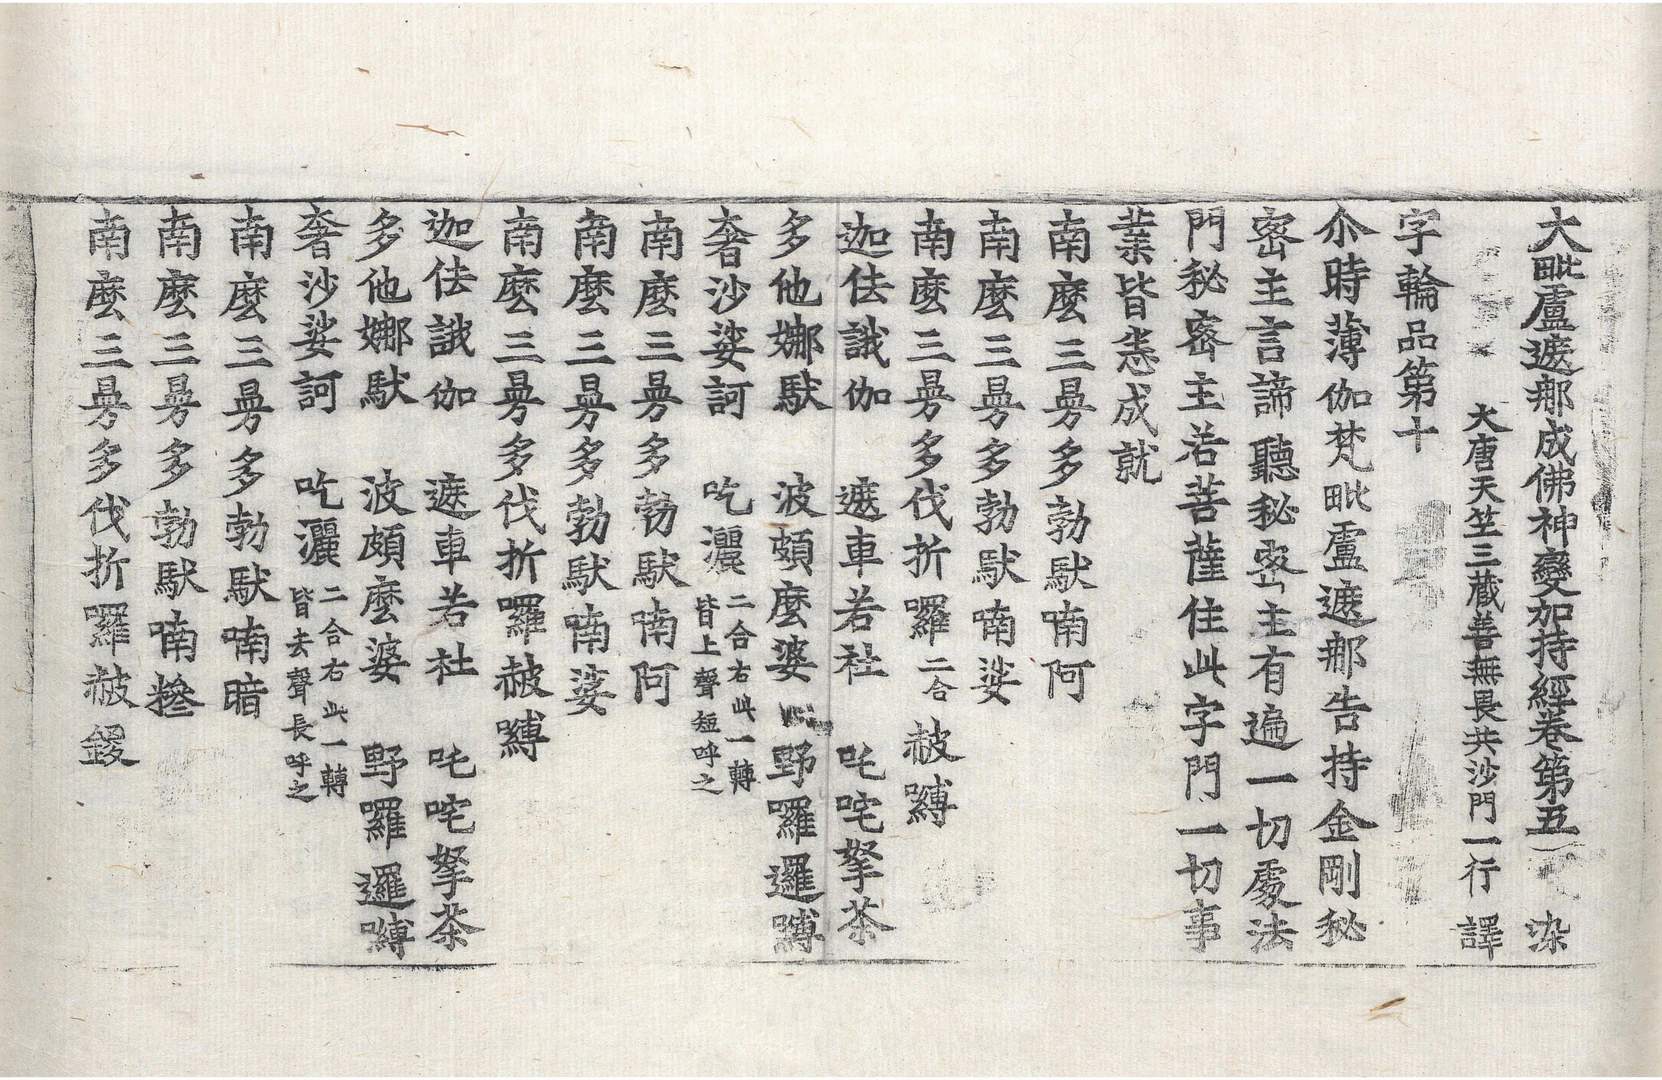 大毗盧遮那成佛神變加持經卷第五　染
大唐天竺三藏善無畏共沙門一行　譯
字輪品第十
尒時薄伽梵毗盧遮那告持金剛秘
密主言諦聽秘密主有遍一切處法
門秘密主若菩薩住此字門一切事
業皆悉成就
南麽三曼多勃馱喃阿
南麽三曼多勃馱喃娑
南麽三曼多伐折囉二合赧嚩
迦佉誐伽　遮車若社　吒咤拏荼
多他娜馱　波頗麽婆　野囉邏嚩
奢沙娑訶　吃灑二合右此一轉皆上聲短呼之
南麽三曼多勃馱喃阿
南麽三曼多勃馱喃娑
南麽三曼多伐折囉赧嚩
迦佉誐伽　遮車若社　吒咤拏荼
多他娜馱　波頗麽婆　野囉邏嚩
奢沙娑訶　吃灑二合右此一轉皆去聲長呼之
南麽三曼多勃馱喃暗
南麽三曼多勃馱喃糝
南麽三曼多伐折囉赧鑁